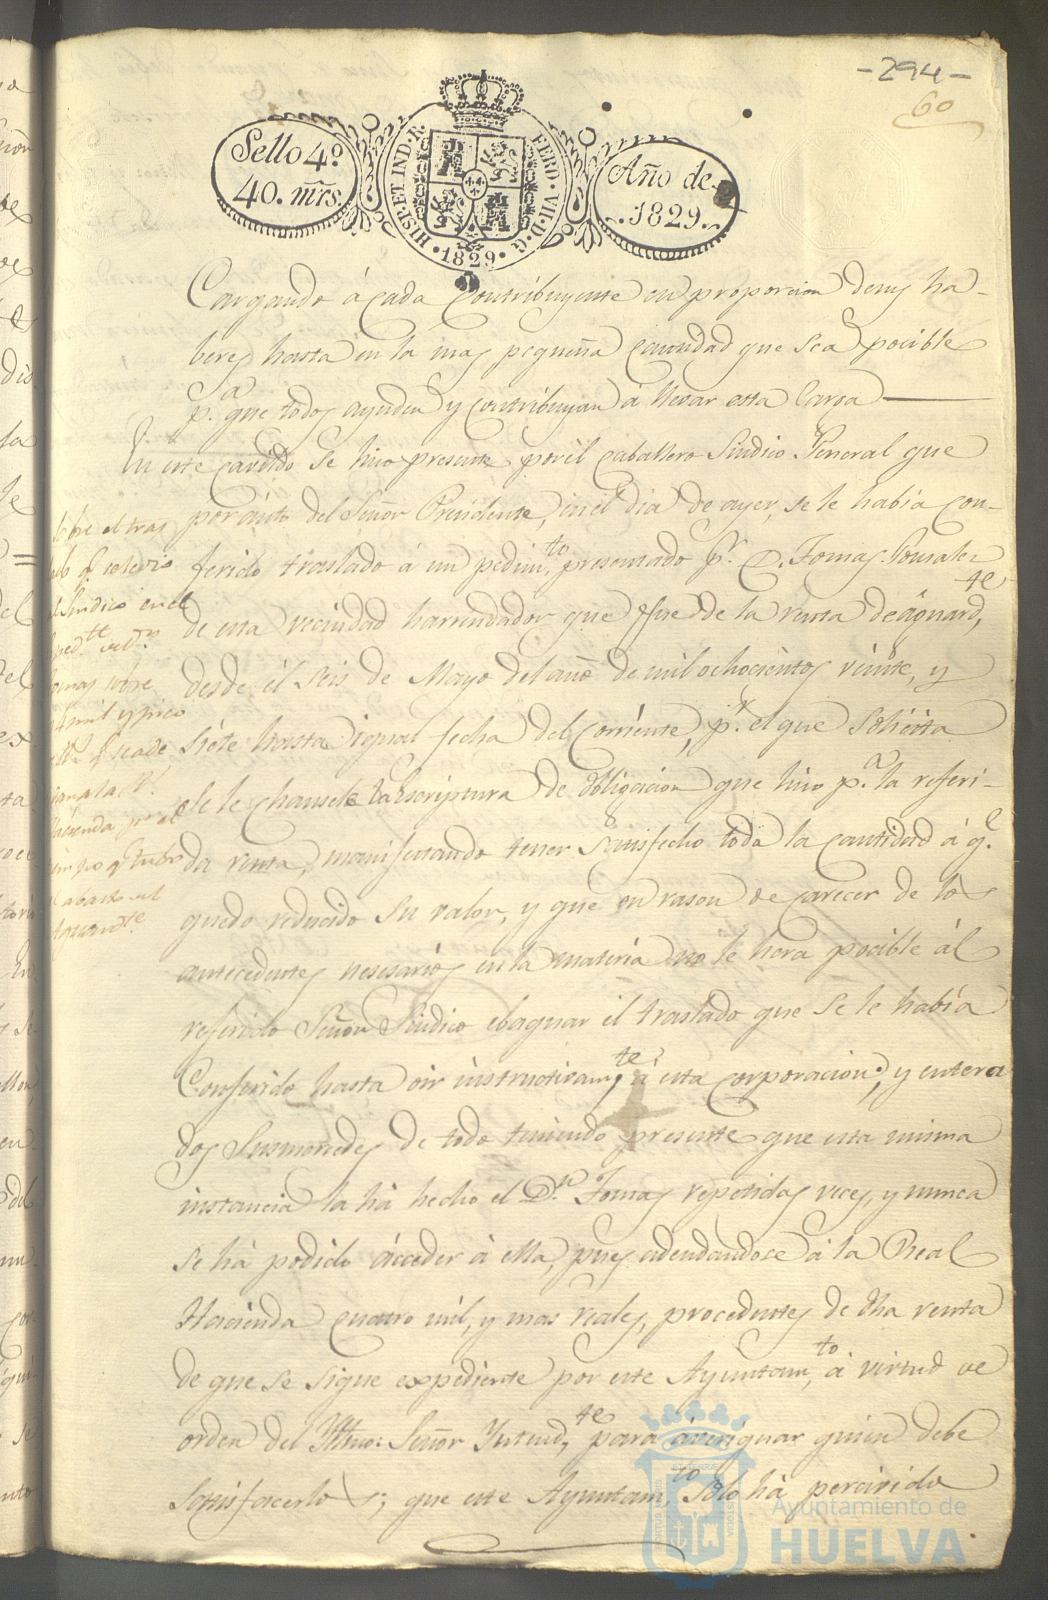 -294-
60
Sello 4º
40. mrs.
HISP. ET IND. R.
FERD. VII. D. G.
1829
Año de
1829.
Cargando á cada Contribuyente en proporcion desus ha-
beres hasta en la mas pequeña cantidad que sea pocible
p.ª que todos ayuden y contribuyan á llevar esta Carga
En este cavildo se hiso presente por el Caballero Sindico General que
por auto del Señor Presidente, en el dia de ayer, se le había con-
ferido traslado á un pedim.to presentado p.r D. Tomas Gonzalez
de esta vecindad harrendador que fue de la renta de águard.te
desde él seis de Mayo del año de mil ochocientos véinte, y
siéte hasta igual fecha del corriente, p.r el que solicita
se le chansele la escriptura de obligacion que hiso p.ª la referi-
da renta, manifestando tener satisfecho toda la cantidad á q.e
quedo reducido su valor, y que en rason de carecer de los
antecedentes nesesarios en la matéria no le hera pocible ál
referido Señor Sindico ebaquar él traslado que se le había
Conferido hasta oir instructivam.te á esta corporacion, y entera
dos Susmercedes de todo teniendo presente que esta misma
instancia la há hecho el D.n Tomas repetidas veces, y nunca
se há podido ácceder á ella, pues adeudandose á la Real
Haciénda cuatro mil, y mas reales, procedentes de dha renta
de que se sigue expediente por este Ayuntam.to á virtud de
orden del Yltmo: Señor Yntend.te para áveriguar quien debe
Satisfacerlos; que este Ayuntam.to solo há percivido
Sobre el tras
lado q.e se le dio
al Sindico en el
ped.to de D.n
Tomas sobre
4 mil y pico
r.s q.e se ade
udan a la R.l
Hacienda por el
tiempo q.e tubo
el abasto del
aguard.te
Ayuntamiento de
HUELVA